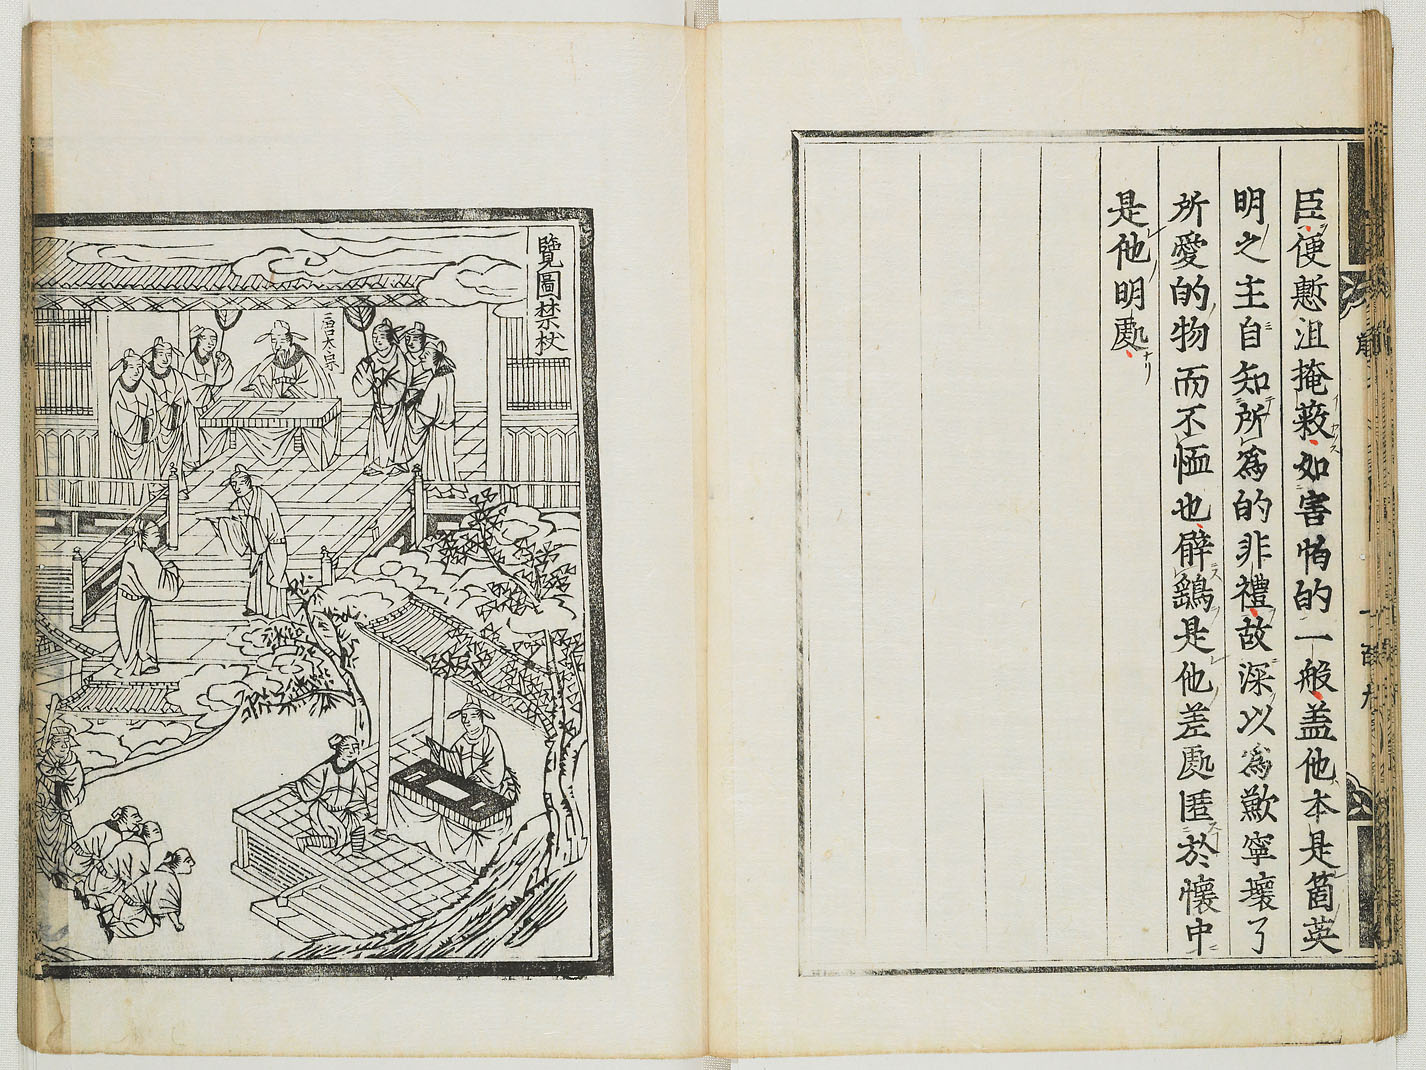 臣便慙沮掩蔽如害怕的一般盖他本是箇英
明之主自知所為的非禮故深以為歉寧壞了
所愛的物而不恤也臂鷂是他差處匿於懷中
是他明處
覽圖禁杖
唐太宗